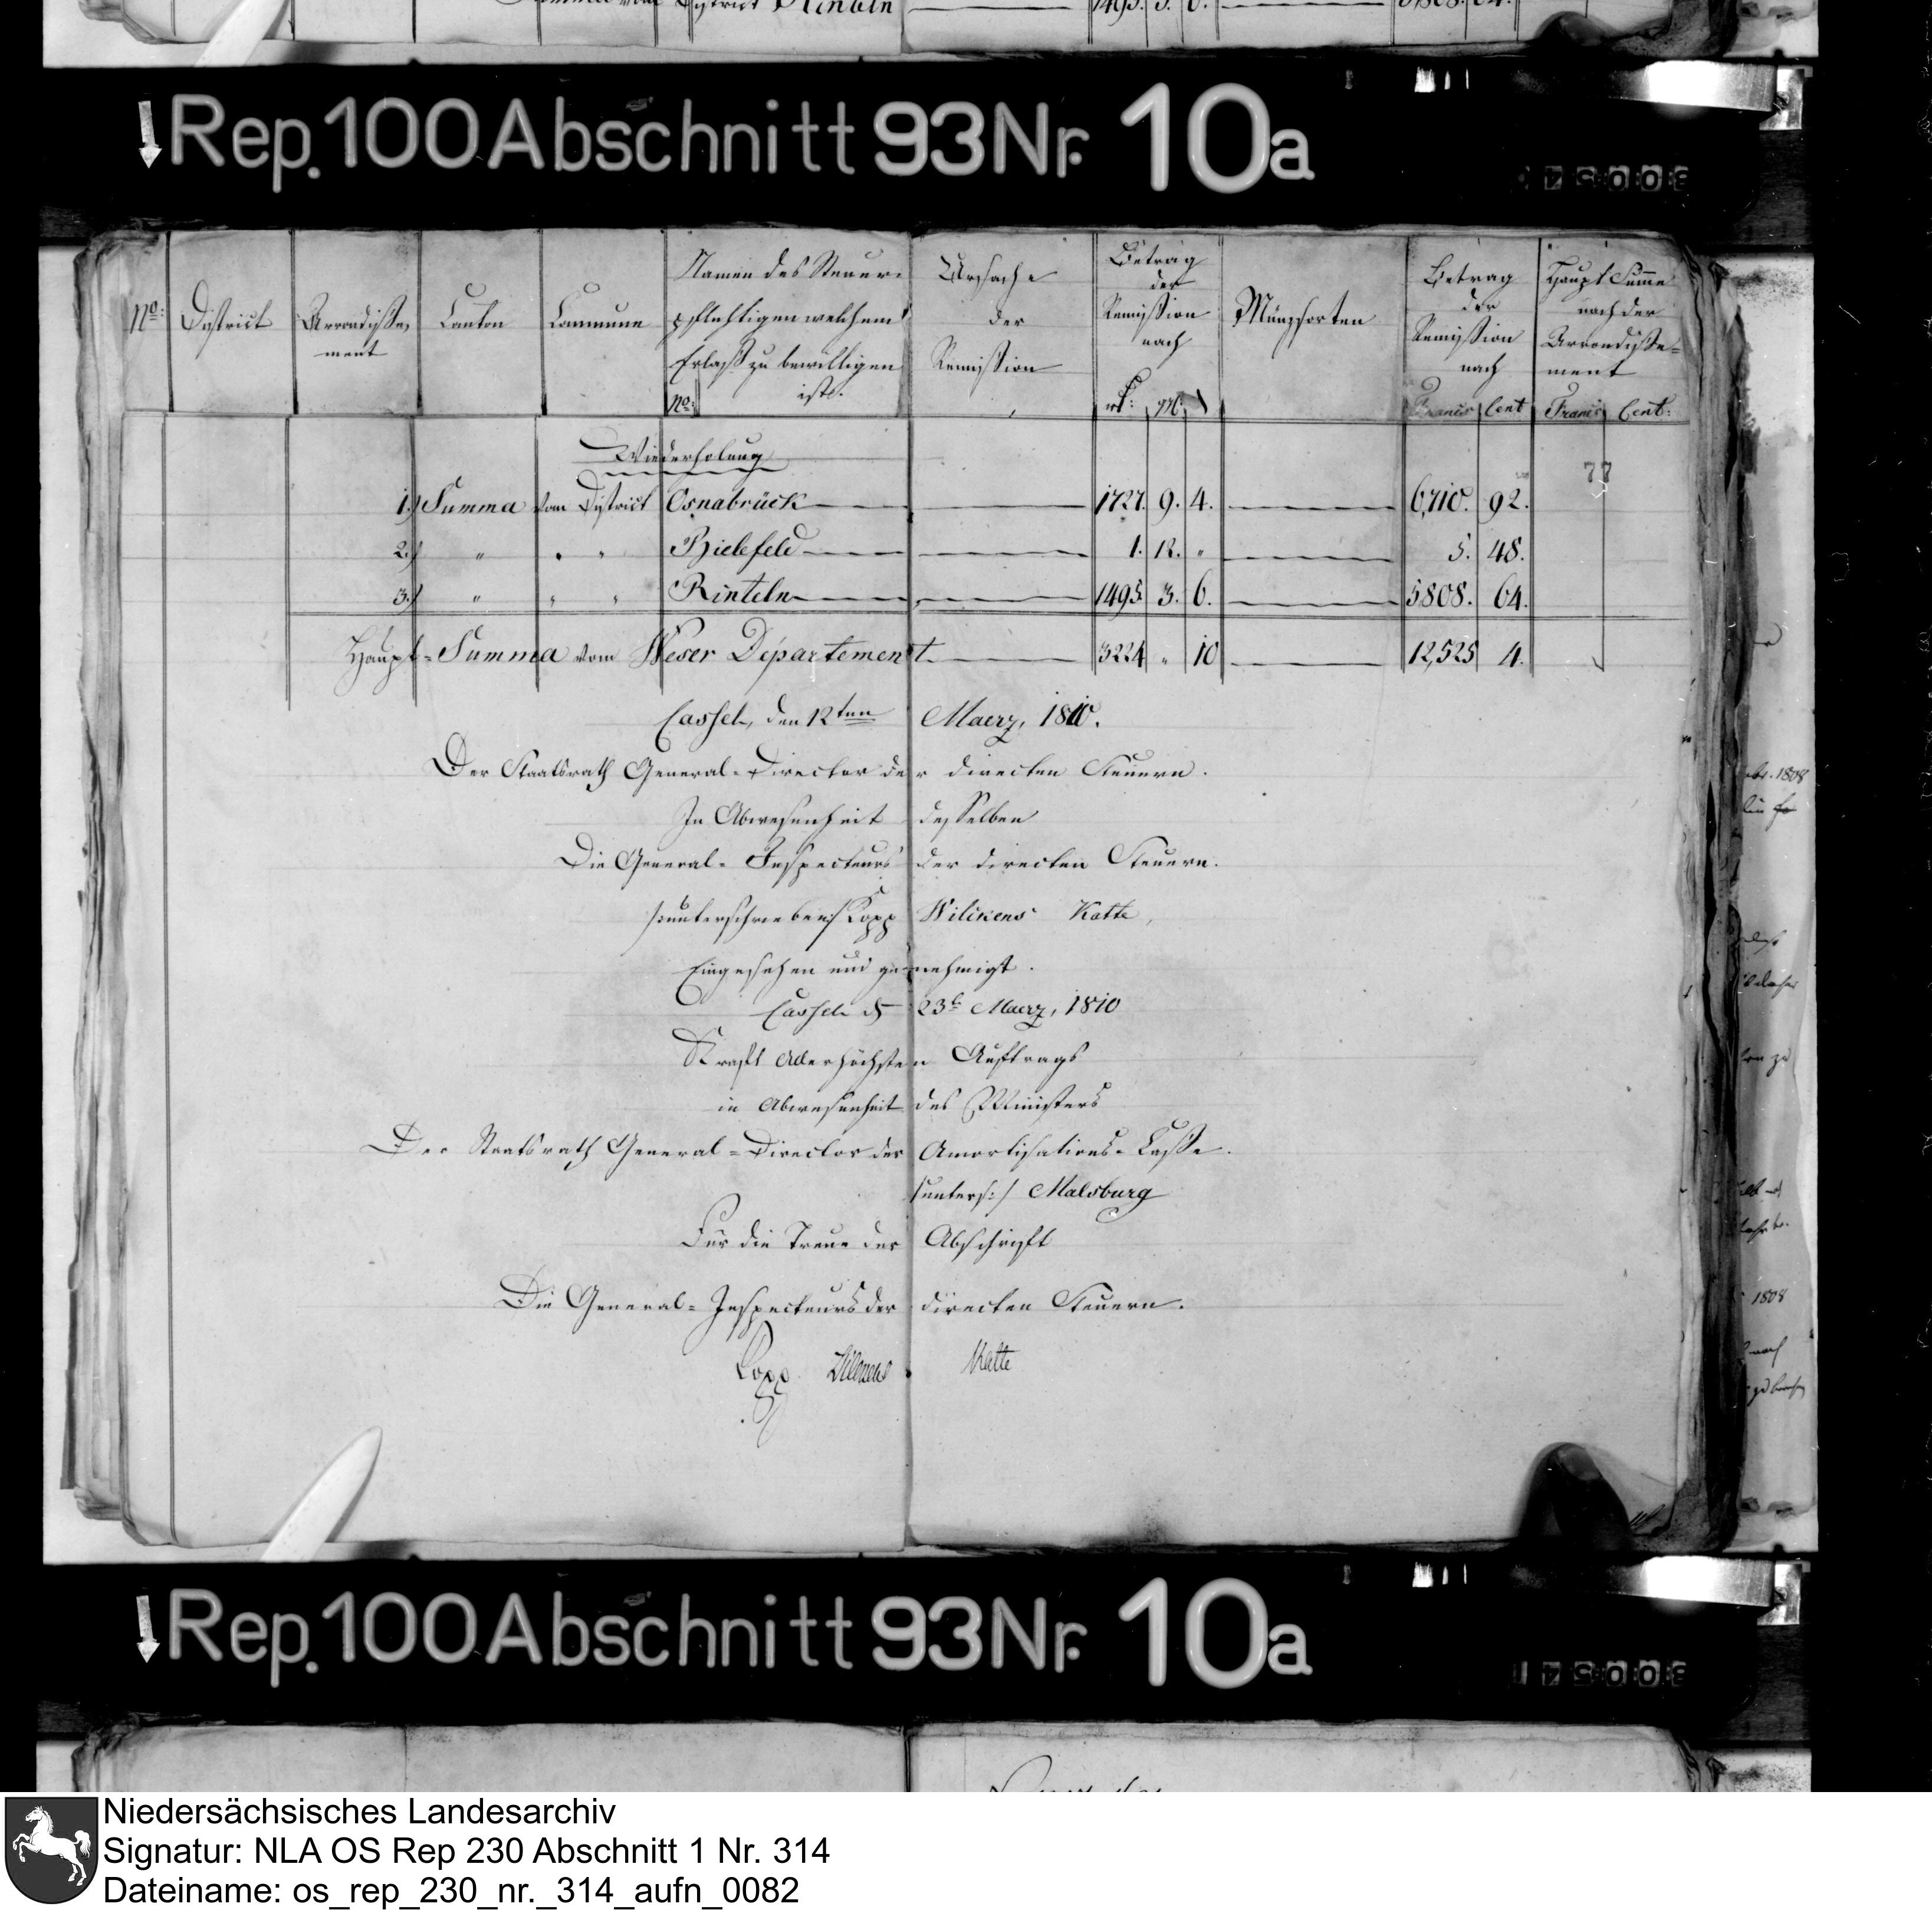 Summa vom District Rinteln 1495. 3. 6. 5808. 64.
Rep. 100 Abschnitt 93 Nr. 10a
No: District Arrondisse-ment Canton Commune Namen des Steuer-pflichtigen welchem Erlaß zu bewilligen ist. No: Ursache der Remission Betrag der Remission nach rt: gr: Münzsorten Betrag der Remission nach Francs Cent Haupt Summe nach der Arrondisse-ment Francs Cent:
77
Wiederholung
1.) Summa vom District Osnabrück 1727. 9. 4. 6710. 92.
2.) " " " Bielefeld 1. 12. " 5. 48.
3.) " " " Rinteln 1495. 3. 6. 5808. 64.
Haupt-Summa vom Weser Departement. 3224 " 10 12,525 4.
Cassel, den 12ten Maerz, 1810.
Der Staatsrath General-Director der directen Steuern.
In Abwesenheit desselben
Die General-Inspecteurs der directen Steuern.
/:unterschrieben:/ Kopp Wilckens Katte,
Eingesehen und genehmigt.
Cassel d 23t Maerz, 1810
Kraft Allerhöchsten Auftrags
in Abwesenheit des Ministers
Der Staatsrath General-Director der Amortisations-Casse.
/unters:/ Malsburg
Für die Treue der Abschrift
Die General-Inspecteurs der directen Steuern.
Kopp Wilckens Katte
Rep. 100 Abschnitt 93 Nr. 10a
Niedersächsisches Landesarchiv
Signatur: NLA OS Rep 230 Abschnitt 1 Nr. 314
Dateiname: os_rep_230_nr._314_aufn_0082